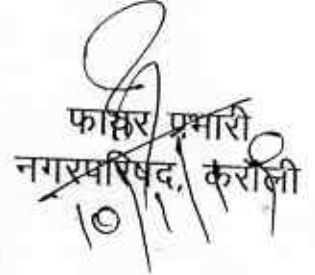 फायर प्रभारी
नगरपरिषद, करौली